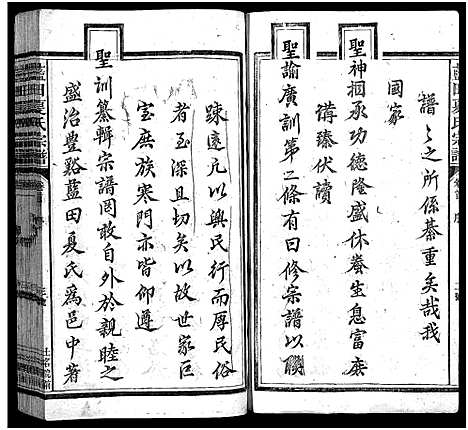 譜之所係綦重矣哉我
國家
聖神揔承功德隆盛休養生息富庶
溝臻伏讀
聖諭廣訓第二條有曰修宗譜以聯
疎遠凡以興民行而厚民俗
者至深且切矣以故世家巨
室庶族寒門亦皆仰遵
聖訓纂輯宗譜罔敢自外於親睦之
盛治豐谿藍田夏氏爲邑中著
藍田夏氏宗譜
藍田夏氏宗譜